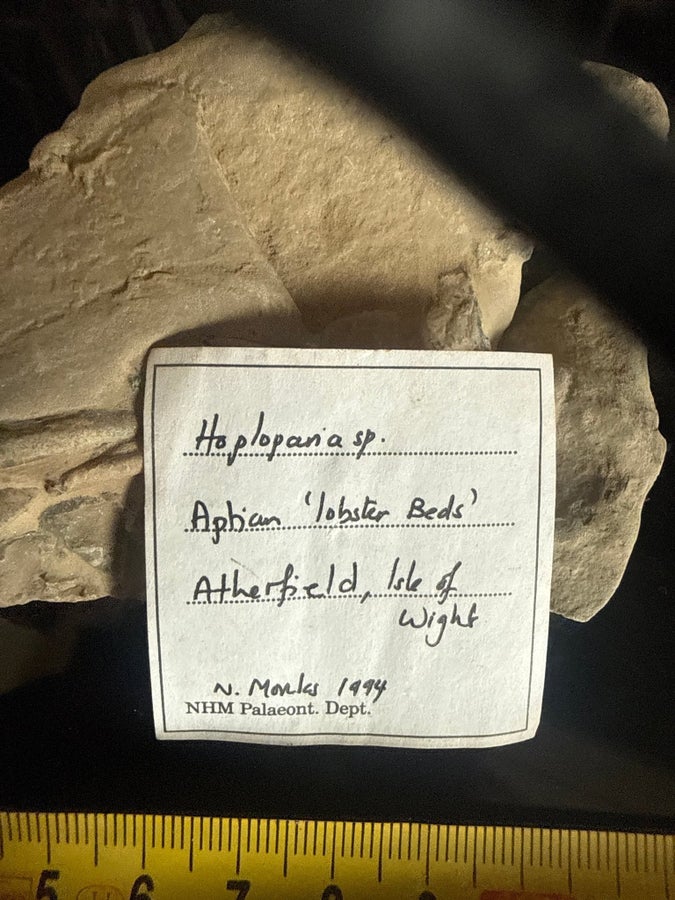 Hoploparia sp.
Aptian 'lobster Beds'
Atherfield, Isle of
Wight
N. Monks 1994
NHM Palaeont. Dept.
5 6 7 8 9